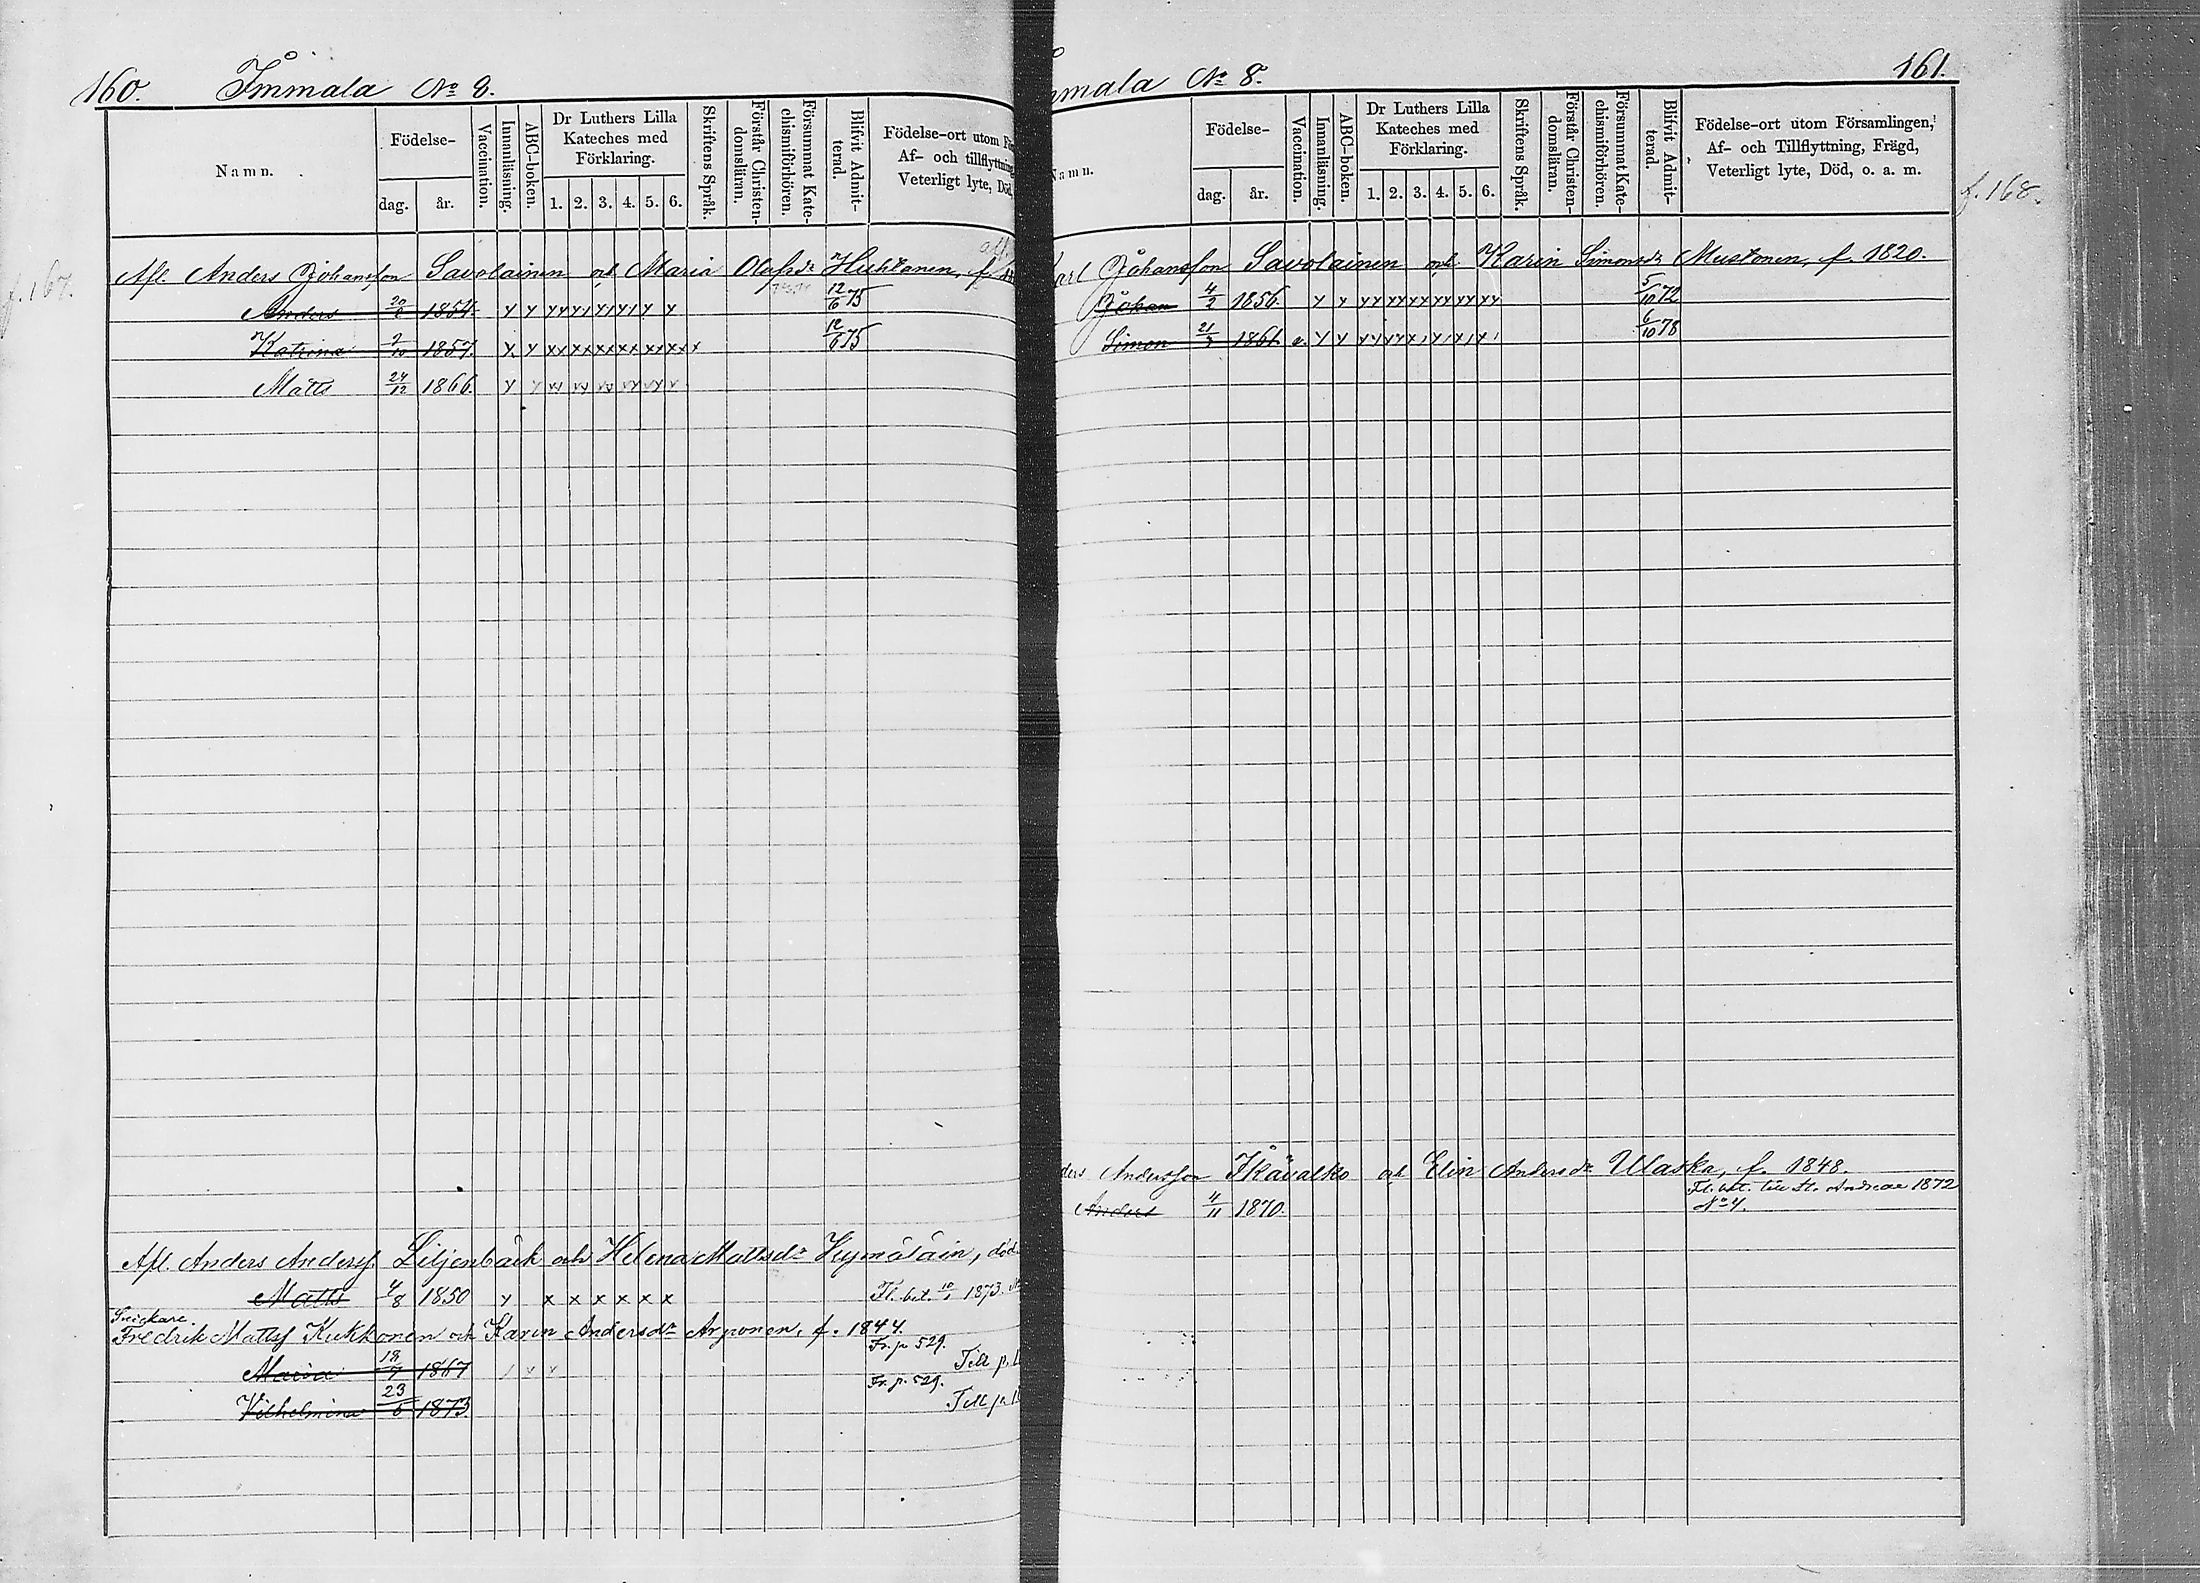 160. Immala No 8.
Namn.
Födelse-
dag. år.
Vaccination.
Innanläsning.
ABC-boken.
Dr Luthers Lilla
Kateches med
Förklaring.
1. 2. 3. 4. 5. 6.
Skriftens Språk.
Förstår Christen-
domsläran.
Försummat Kate-
chismiförhören.
Blifvit Admit-
terad.
Födelse-ort utom
Af- och tillflyttning
Veterligt lyte, Död,
f. 167.
Afl. Anders Johansson Savolainen och Maria Olofsdr Huhtanen, f.
Anders 20/ 1854. 12/6 75
Katrina 1857. 12/6 75
Matts 24/12 1866.
Afl. Anders Andersf. Liljenbäck och Helena Mattsdr Hymäläin, död
Matts 4/8 1850 x x x x x x Fl. bet. 10/1 1873.
Snickare.
Fredrik Mattsf Kukkonen och Karin Andersdr Arponen, f. 1844.
Maria 18/7 1867 Fr. p. 529. Till p.
Vilhelmina 23/5 1873. Fr. p. 529. Till p.
mmala No 8. 161.
amn.
Födelse-
dag. år.
Vaccination.
Innanläsning.
ABC-boken.
Dr Luthers Lilla
Kateches med
Förklaring.
1. 2. 3. 4. 5. 6.
Skriftens Språk.
Förstår Christen-
domsläran.
Försummat Kate-
chismiförhören.
Blifvit Admit-
terad.
Födelse-ort utom Församlingen,
Af- och Tillflyttning, Frägd,
Veterligt lyte, Död, o. a. m.
f. 168.
arl Johansson Savolainen och Karin Simonsdr Mustonen, f. 1820.
Johan 4/2 1856. 5/10 72
Simon 21/ 1861. v. 6/10 78
ders Andersson Räválko och Elin Andersdr Ulaska, f. 1848.
Anders 4/11 1870. Fl. bet. till St. Andreae 1872
No 4.